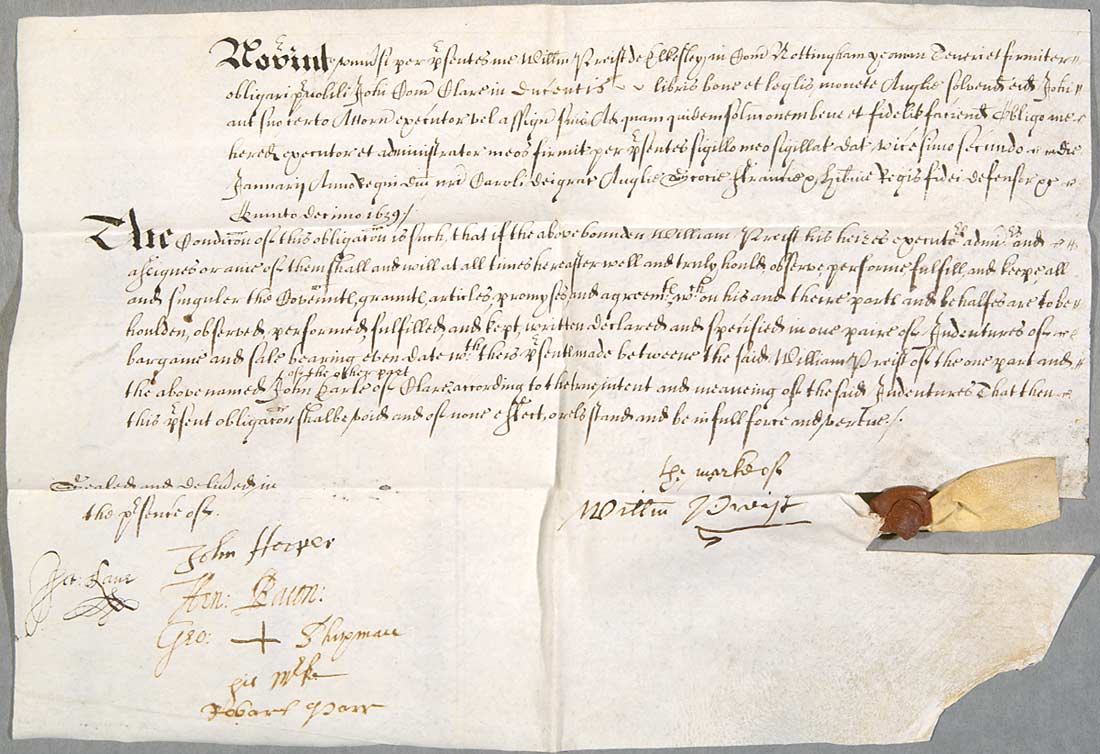 Novint univsi per psentes me Willm Preist de Elkesley in Com Nottingham yeoman Teneri et firmiter
obligari pnobili John Com Clare in ducentis libris bone et legalis monete Anglie solvend eid John
aut suo certo Attorn executor vel assign suis Ad quam quidem soluconem bene et fidelit faciend Obligo me
hered executor et administrator meos firmit per psentes sigillo meo sigillat dat vicesimo secundo die
Januarij Anno regni dni nri Caroli dei gra Anglie Scotie Francie & Hibnie Regis fidei defensor &c
Quinto decimo 1639/
The Condicon of this obligacon is such, that if the above bounden William Preist his heires execut adm and
assignes or anie of them shall and will at all times hereafter well and truly hould, observe, performe fulfill, and keepe, all
and singuler the Covennts, graunts, articles, promyses, and agreemts, wch on his and theire parts and behalfes are to be
houlden, observed, performed, fulfilled, and kept, written declared and specified in one paire of Indentures of
bargaine and sale bearing even date wth theis psents made betweene the said William Preist of the one part and
of the other part
the above named John Earle of Clare according to the true intent and meaneing of the said Indentures That then
this psent obligacon shalbe void and of none effect, or els stand and be in full force and vertue /.
the marke of
Willm Preist
Sealed and delived in
the psence of
John Hooper
Hen: Bacon:
Geo: + Shipman
his mke
Robart Parr